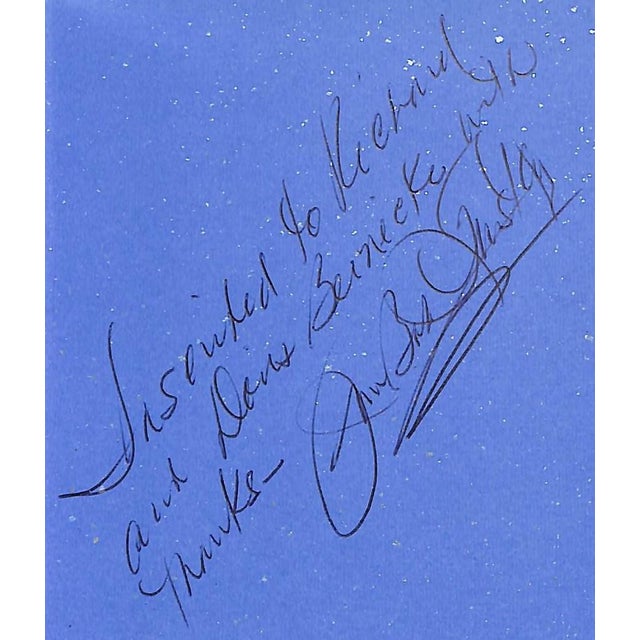 Inscribed to Richard
and Doris Beinecke with
Thanks-